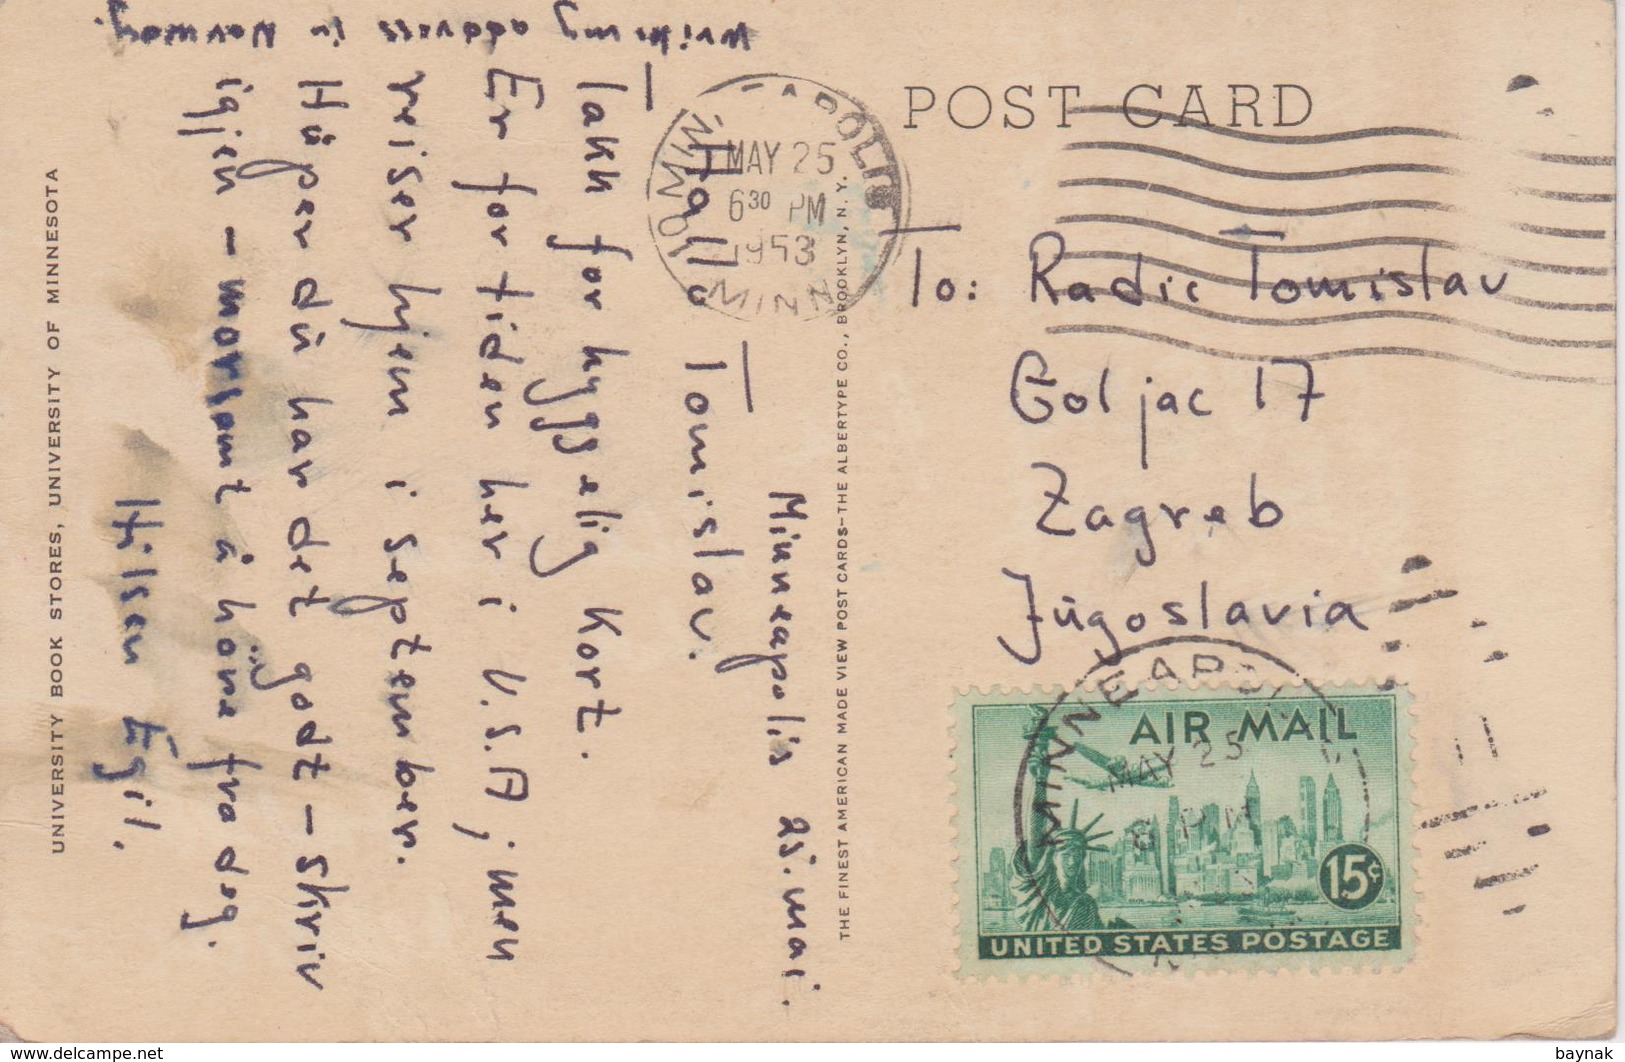 POST CARD
Minneapolis 25. mai.
Hallo Tomislav.
Takk for hyggelig kort.
Er for tiden her i U.S.A; men
reiser hjem i september.
Håper du har det godt – Skriv
igjen – morsomt å høre fra deg.
Hilsen Egil.
Write my address in Norway.
To: Radic Tomislav
Goljac 17
Zagreb
Jugoslavia
MAY 25
6 30 PM
1953
MINNEAPOLIS
MINN
MINNEAPOLIS
MAY 25
8 PM
AIR MAIL
15¢
UNITED STATES POSTAGE
UNIVERSITY BOOK STORES, UNIVERSITY OF MINNESOTA
THE FINEST AMERICAN MADE VIEW POST CARDS—THE ALBERTYPE CO., BROOKLYN, N. Y.
www.delcampe.net
baynak